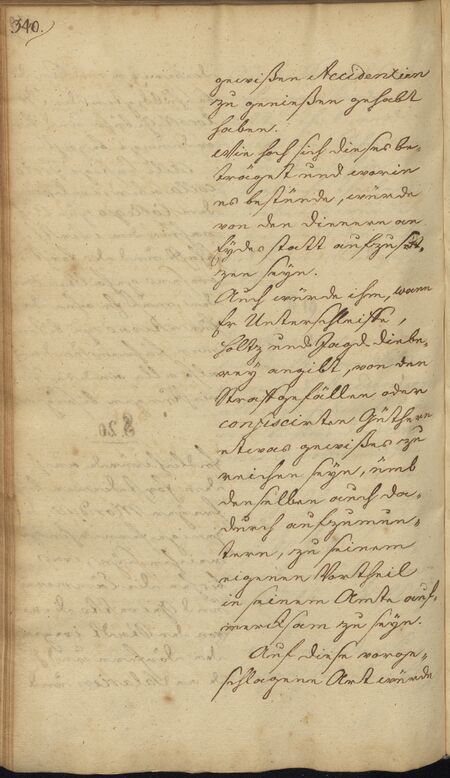 340.
gewißen Accidentien
zu genießen gehabt
haben.
Wie hoch sich dieses be-
träget und worin
es bestünde, würde
von den Dienern an
Eydes statt aufzuset-
zen seyn.
Auch würde ihm, wann
Er Unterschleiffe,
Holtz und Jagd diebe-
rey angibt, von den
Straffgefällen oder
confiscirten Güthern
etwas gewißes zu
reichen seyn, umb
denselben auch da-
durch aufzumun-
tern, zu seinem
eigenen Vortheil
in seinem Amte auf-
mercksam zu seyn.
Auf diese vorge-
schlagene Art würde
§. 20